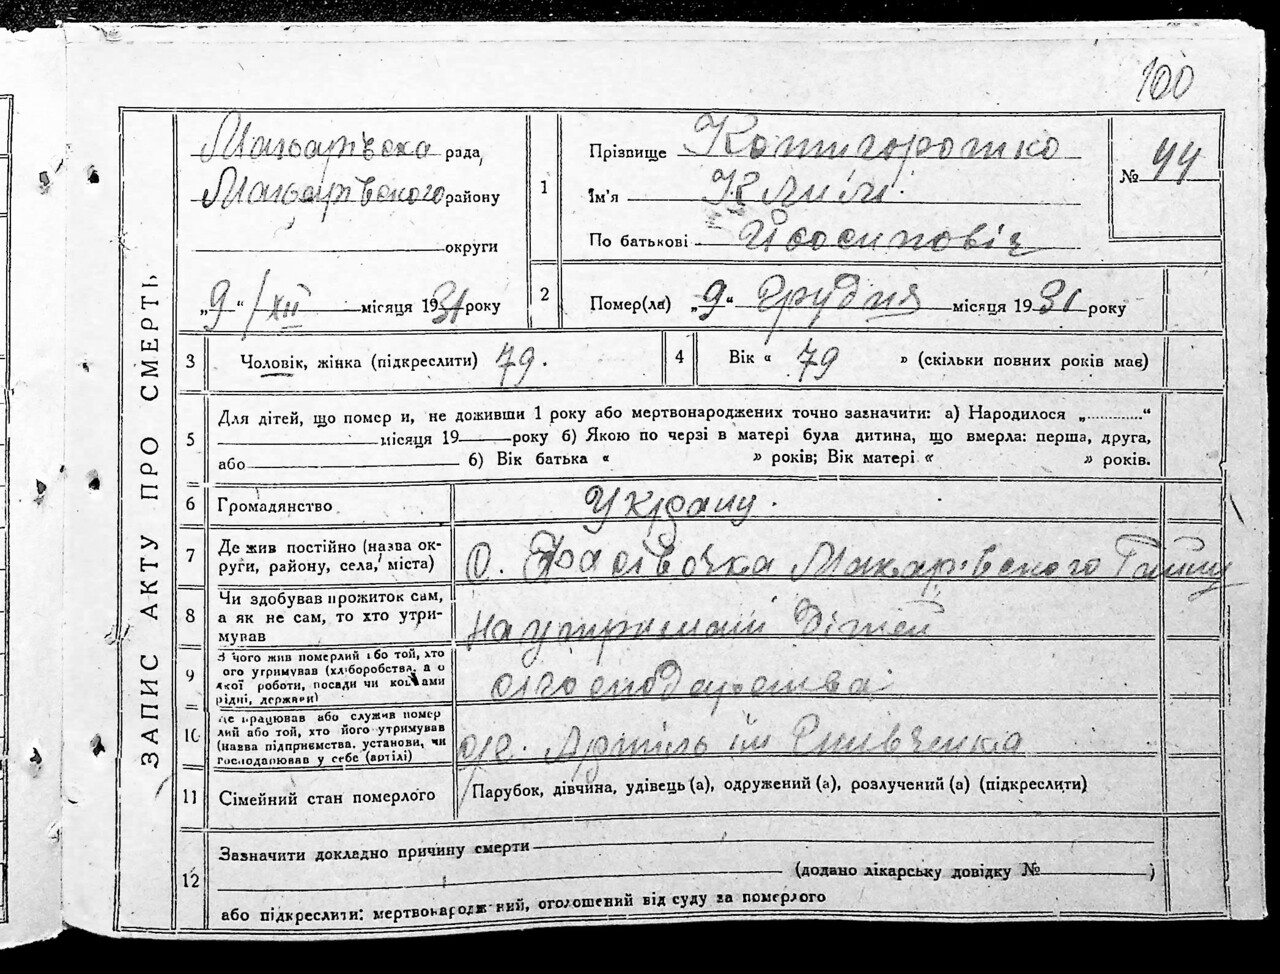 100
ЗАПИС АКТУ ПРО СМЕРТЬ
Макарівська рада
Макарівського району
округи
„9“ / XII місяця 1931 року
1
Прізвище Котигорошко
Ім'я Клим
По батькові Йосипович
№ 44
2
Помер(ла) „9“ Грудня місяця 1931 року
3 Чоловік, жінка (підкреслити) 79.
4 Вік « 79 » (скільки повних років має)
5
Для дітей, що помер и, не доживши 1 року або мертвонароджених точно зазначити: а) Народилося „............“
місяця 19 року б) Якою по черзі в матері була дитина, що вмерла: перша, друга,
або б) Вік батька « » років; Вік матері « » років.
6 Громадянство
7 Де жив постійно (назва ок-
руги, району, села, міста)
с. Фасівочка Макарівського
8 Чи здобував прожиток сам,
а як не сам, то хто утри-
мував
На утриманні дітей
9
З чого жив померлий або той, хто
ого утримував (хліборобства, а о
якої роботи, посади чи коштами
рідні, держави)
10
Де працював або служив помер
лий або той, хто його утримував
(назва підприємства, установи, чи
господарював у себе (артілі)
Артіль ім
11 Сімейний стан померлого
Парубок, дівчина, удівець (а), одружений (а), розлучений (а) (підкреслити)
12
Зазначити докладно причину смерти
(додано лікарську довідку № )
або підкреслити: мертвонароджений, оголошений від суду за померлого